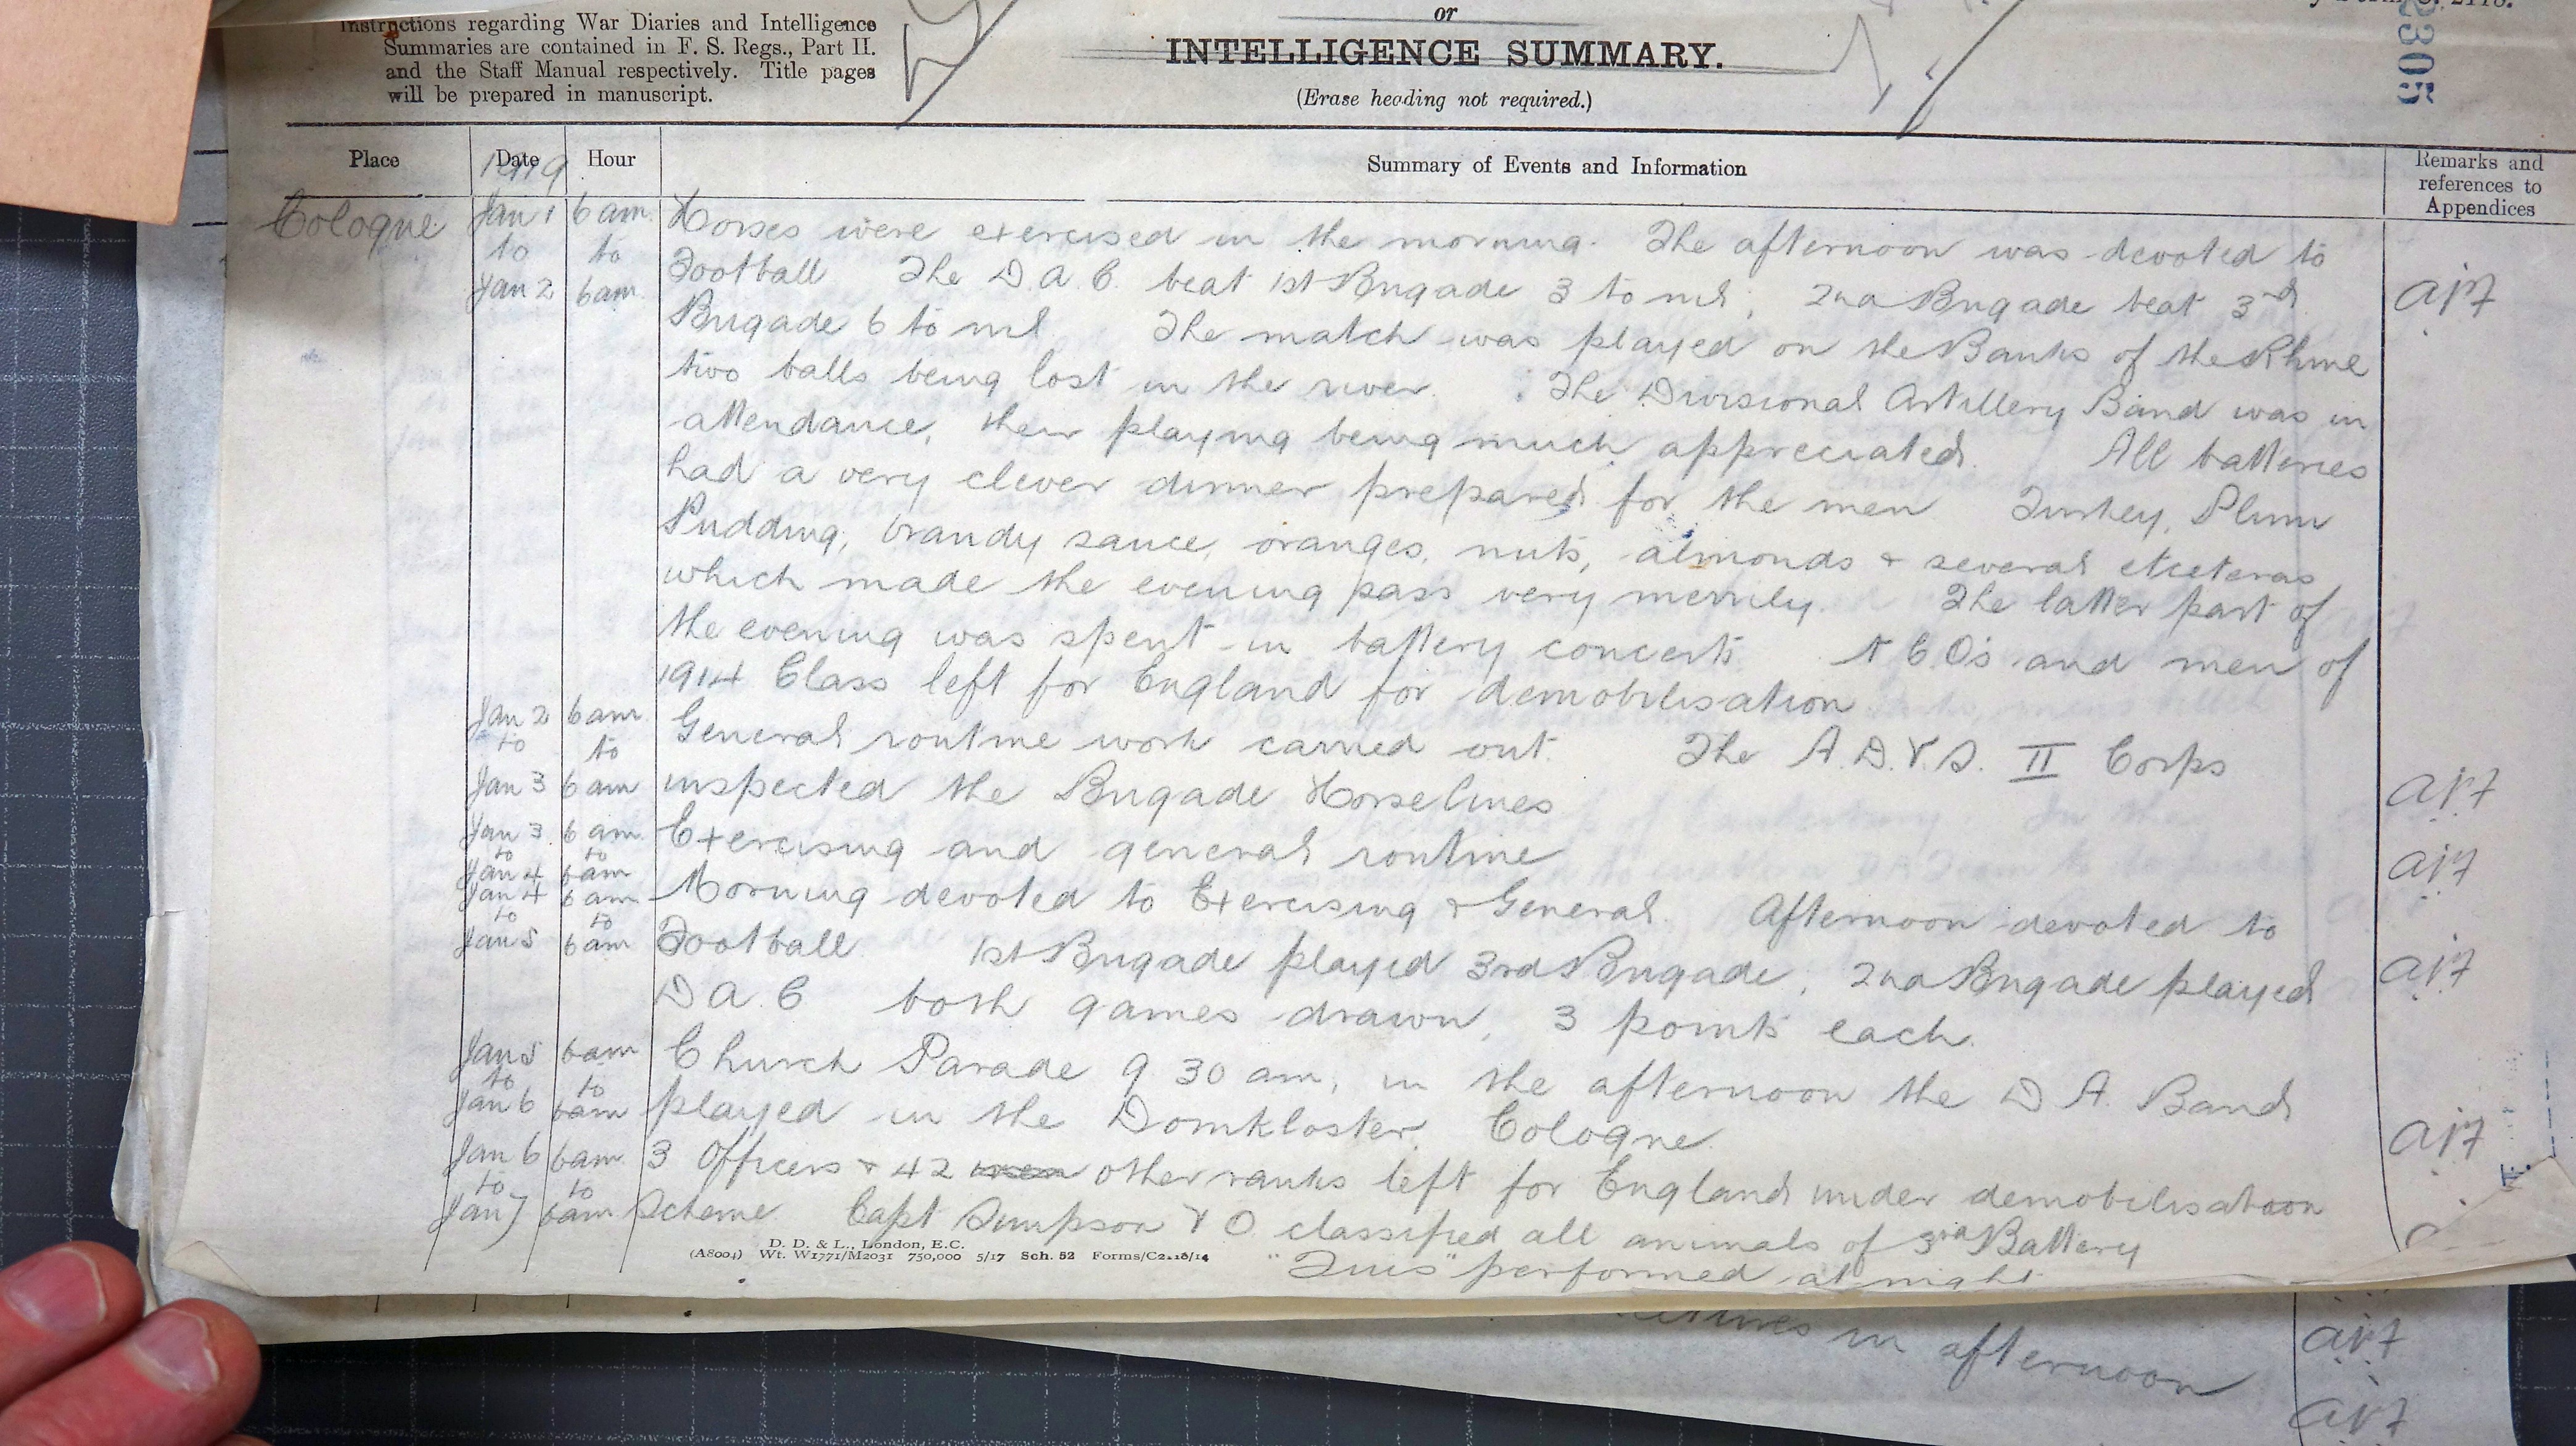 Instructions regarding War Diaries and Intelligence
Summaries are contained in F. S. Regs., Part II.
and the Staff Manual respectively. Title pages
will be prepared in manuscript.
or
INTELLIGENCE SUMMARY.
(Erase heading not required.)
2305
Place Date Hour Summary of Events and Information Remarks and references to Appendices
1919
Cologne Jan 1 6 am. Horses were exercised in the morning. The afternoon was devoted to
to to Football The D.A.C. beat 1st Brigade 3 to nil; 2nd Brigade beat 3rd
Jan 2 6am. Brigade 6 to nil The match was played on the Banks of the Rhine
two balls being lost in the river. The Divisional Artillery Band was in
attendance, their playing being much appreciated. All batteries
had a very clever dinner prepared for the men Turkey, Plum
Pudding, brandy sauce, oranges, nuts, almonds & several etceteras
which made the evening pass very merrily. The latter part of
the evening was spent in battery concerts N.C.O's and men of
1914 Class left for England for demobilisation
Jan 2 6am. General routine work carried out. The A.D.V.S. II Corps
to to
Jan 3 6 am inspected the Brigade Horselines
Jan 3 6 am. Exercising and general routine
to to
Jan 4 6am
Jan 4 6 am Morning devoted to Exercising & General. Afternoon devoted to
to to
Jan 5 6am Football 1st Brigade played 3rd Brigade, 2nd Brigade played
D.A.C both games drawn, 3 points each.
Jan 5 6am Church Parade 9 30 am, in the afternoon the D.A. Band
to to
Jan 6 6am played in the Domkloster, Cologne.
Jan 6 6am. 3 Officers & 42 men other ranks left for England under demobilisation
to to
Jan 7 6am Scheme Capt Simpson V O. classified all animals of 3rd Battery
performed at night.
D. D. & L., London, E.C.
(A8004) Wt. W1771/M2031 750,000 5/17 Sch. 52 Forms/C2118/14
in afternoon